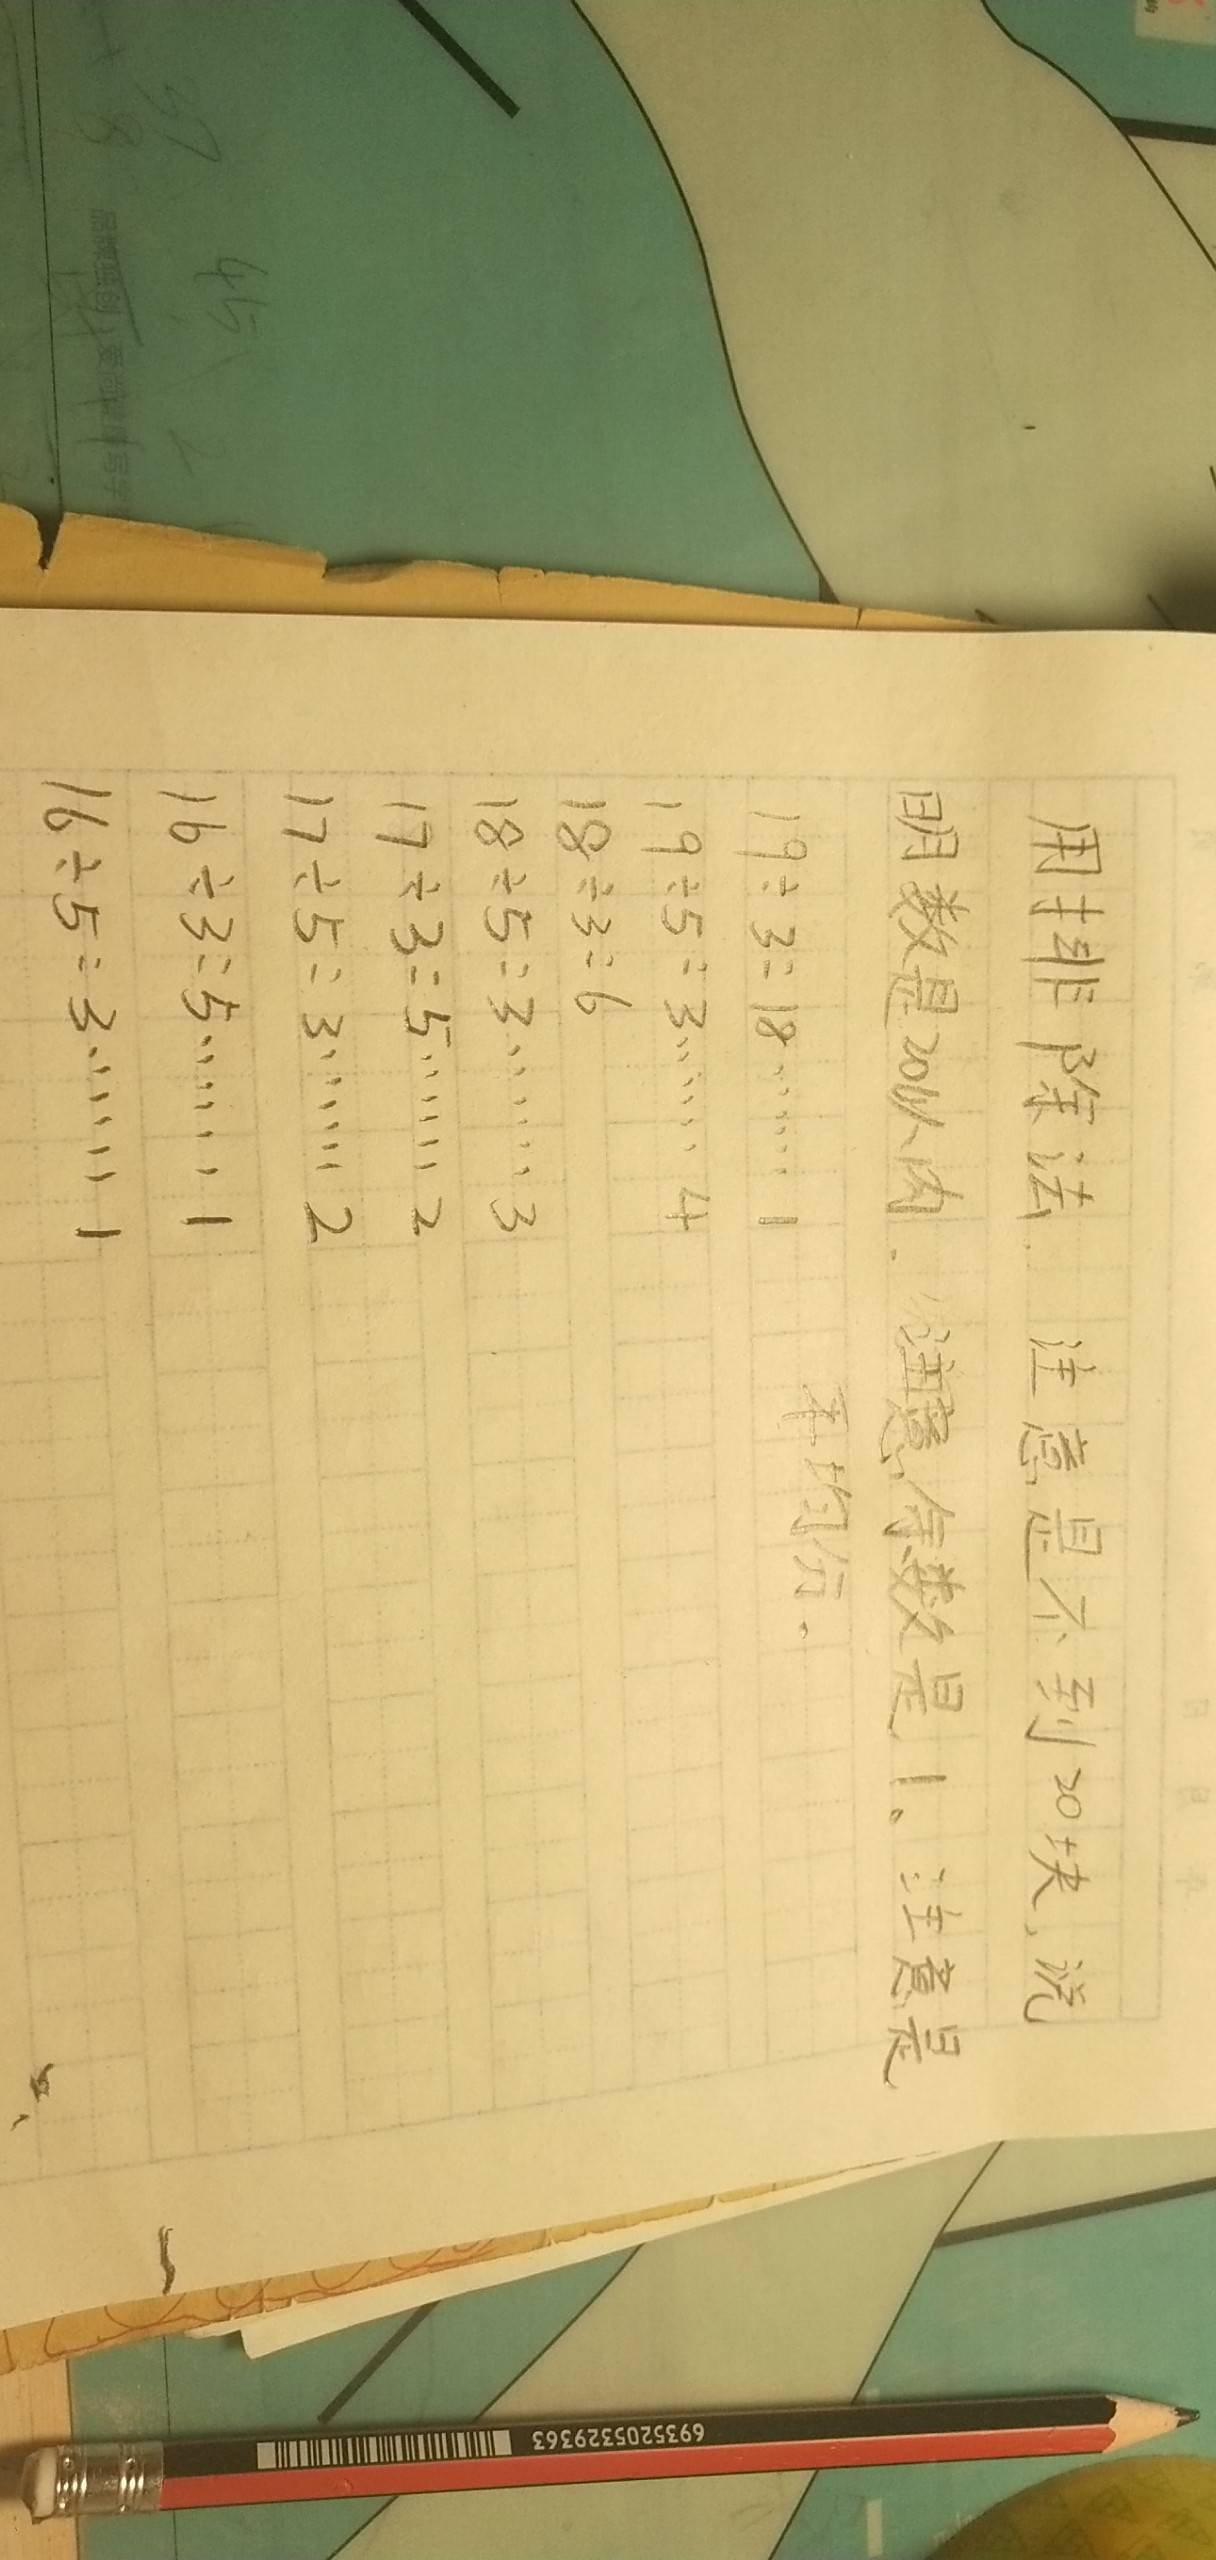 用排除法. 注意是不到20块,说
明数是20以内. 注意,余数是1。注意是
平均分.
19÷3=18……1
19÷5=3……4
18÷3=6
18÷5=3……3
17÷3=5……2
17÷5=3……2
16÷3=5……1
16÷5=3……1
6935205329363